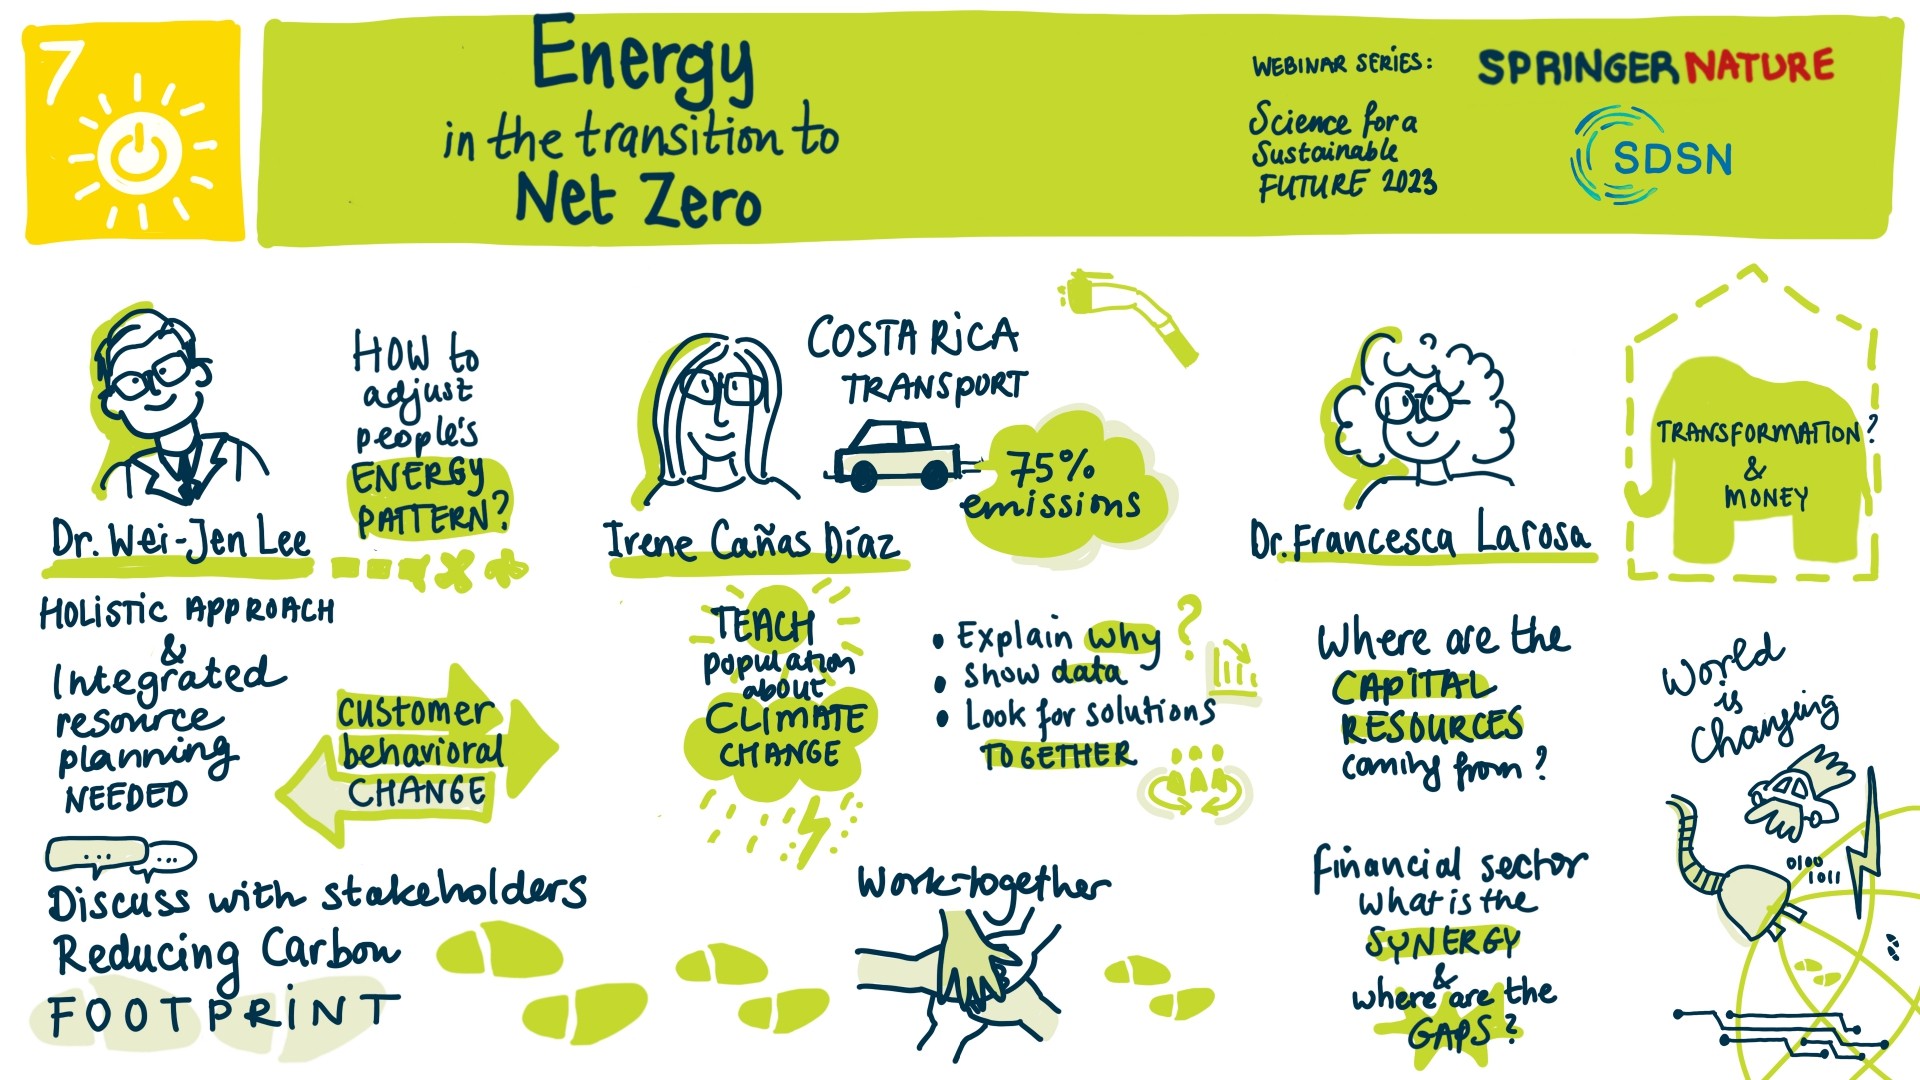 7
Energy
in the transition to
Net Zero
WEBINAR SERIES:
Science for a
Sustainable
FUTURE 2023
SPRINGER NATURE
SDSN
Dr. Wei-Jen Lee
HOW to
adjust
people's
ENERGY
PATTERN?
HOLISTIC APPROACH
&
Integrated
resource
planning
NEEDED
customer
behavioral
CHANGE
...
...
Discuss with stakeholders
Reducing Carbon
FOOTPRINT
Irene Cañas Díaz
COSTA RICA
TRANSPORT
75%
emissions
TEACH
population
about
CLIMATE
CHANGE
• Explain why
?
• Show data
• Look for solutions
TOGETHER
Work together
Dr. Francesca Larosa
TRANSFORMATION?
&
MONEY
Where are the
CAPITAL
RESOURCES
coming from?
Financial sector
What is the
SYNERGY
&
where are the
GAPS?
World
is
Changing
0100
1011